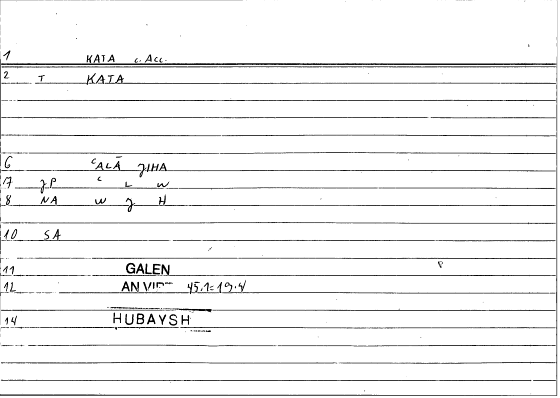 1 KATA c. Acc.
2 T KATA
6 ʿALĀ ǧIHA
17 ǧP ʿ L w
8 NA w ǧ H
10 SA
11 GALEN
12 AN 45.1 = 19.4
14 HUBAYSH